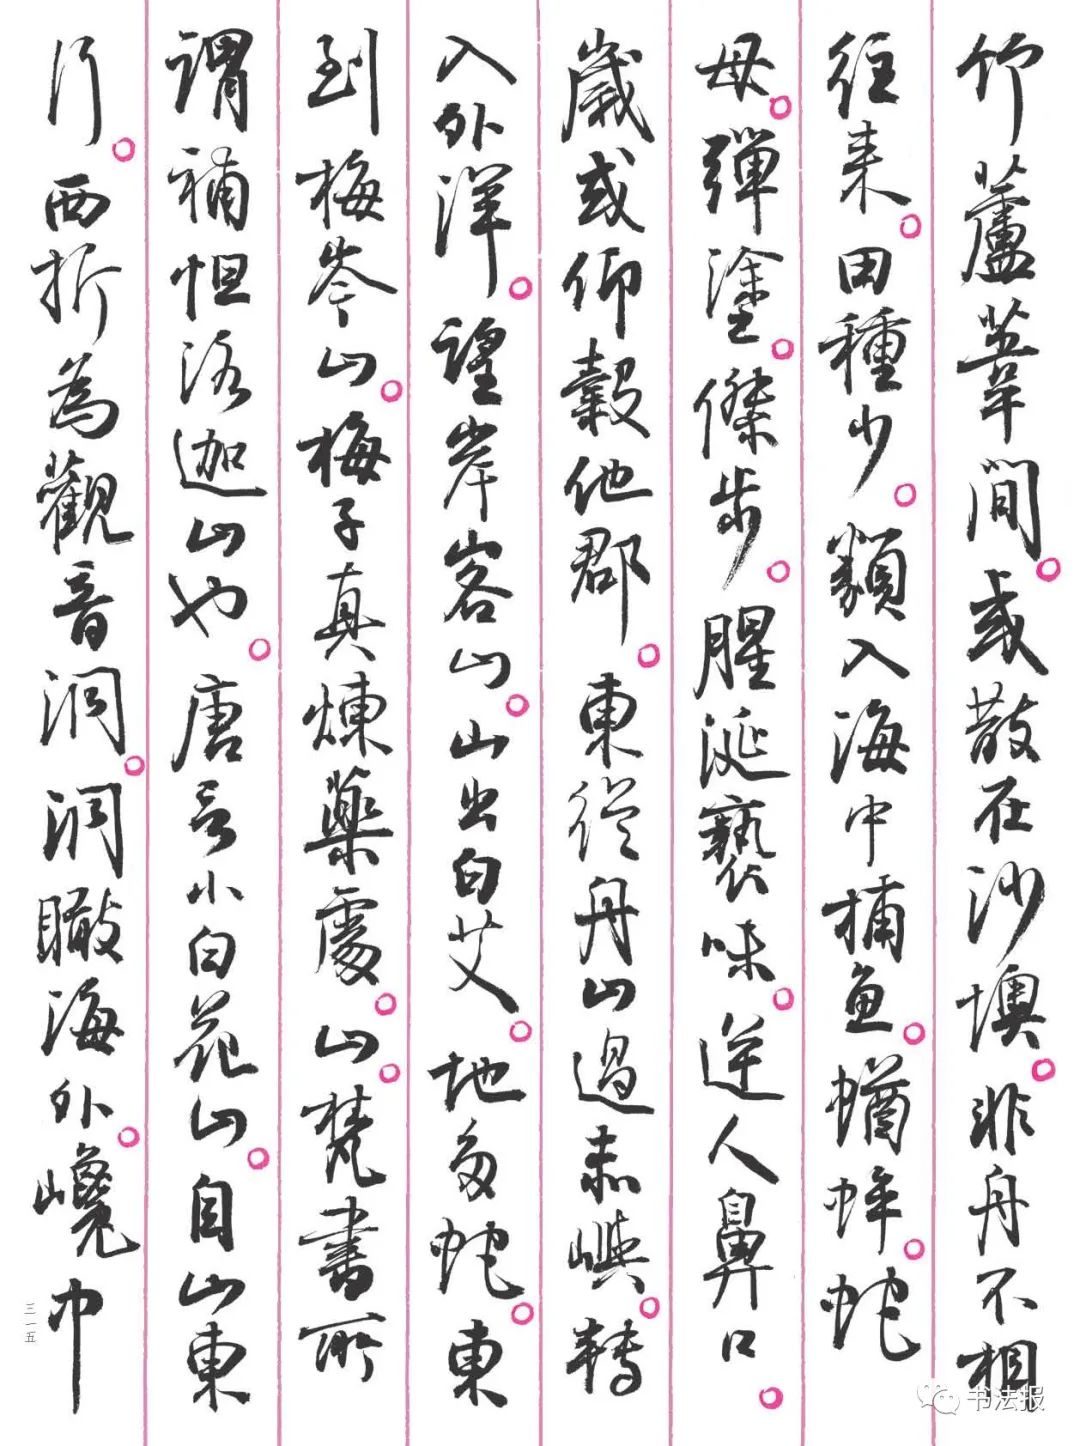 竹蘆葦間。或散在沙墺。非舟不相
往來。田種少。類入海中捕魚。蝤蛑。蛇
母。彈塗。傑步。腥涎褻味。逆人鼻口。
歲或仰穀他郡。東從舟山過赤嶼。轉
入外洋。望岸客山。山出白艾。地多蛇。東
到梅岑山。梅子真煉藥處。山。梵書所
謂補怛洛迦山也。唐言小白花山。自山東
行。西折為觀音洞。洞瞰海外。巉中
三一五
书法报